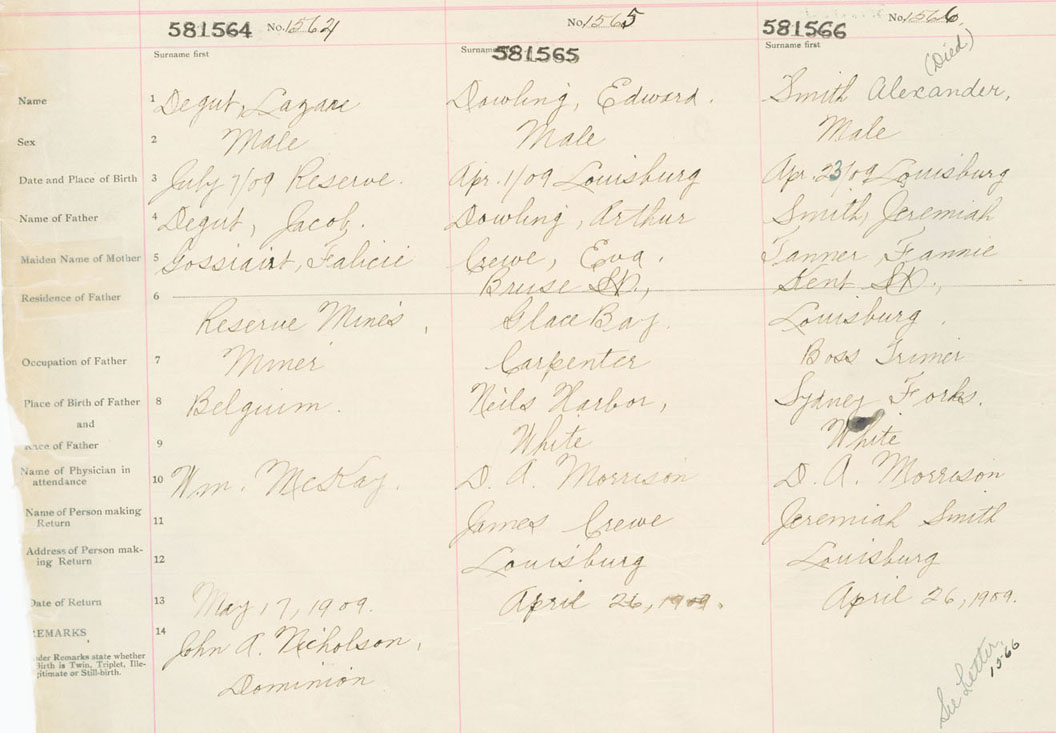 581564 No. 1564
Surname first
No. 1565
Surname 581565
581566 No. 1566
Surname first
(Died)
Name 1 Degut, Lazare Dowling, Edward. Smith Alexander,
Sex 2 Male Male Male
Date and Place of Birth 3 July 7/09 Reserve. Apr. 1/09 Louisburg Apr. 23/09 Louisburg
Name of Father 4 Degut, Jacob. Dowling, Arthur Smith, Jeremiah
Maiden Name of Mother 5 Falicie Crewe, Eva. Tanner, Fannie
Residence of Father 6 Bruse St., Kent St.,
Reserve Mines, Glace Bay. Louisburg.
Occupation of Father 7 Miner Carpenter Boss Trimer
Place of Birth of Father 8 Belguim. Neils Harbor, Sydney Forks.
and
Race of Father 9 White White
Name of Physician in
attendance 10 Wm. McKay. D. A. Morrison D. A. Morrison
Name of Person making
Return 11 James Crewe Jeremiah Smith
Address of Person mak-
ing Return 12 Louisburg Louisburg
Date of Return 13 May 17, 1909. April 26, 1909. April 26, 1909.
REMARKS 14 John A. Nicholson,
Under Remarks state whether
Birth is Twin, Triplet, Ille-
gitimate or Still-birth.
Dominion
See Letter
1566